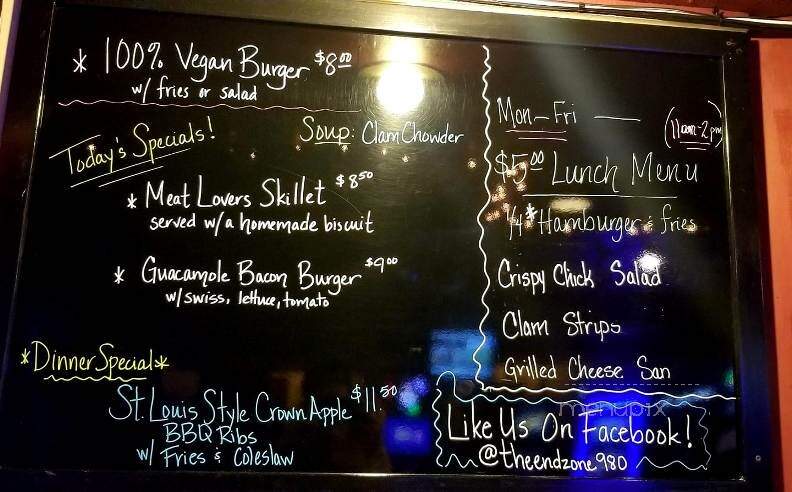 * 100% Vegan Burger $8.00
w/ fries or salad
Today's Specials!
Soup: Clam Chowder
* Meat Lovers Skillet $8.50
served w/a homemade biscuit
* Guacamole Bacon Burger $9.00
w/swiss, lettuce, tomato
*Dinner Special*
St. Louis Style Crown Apple $11.50
BBQ Ribs
w/ Fries & Coleslaw
Mon-Fri — (11am-2pm)
$5.00 Lunch Menu
1/4# Hamburger & fries
Crispy Chick Salad
Clam Strips
Grilled Cheese San
menupix
Like Us On Facebook!
@theendzone980